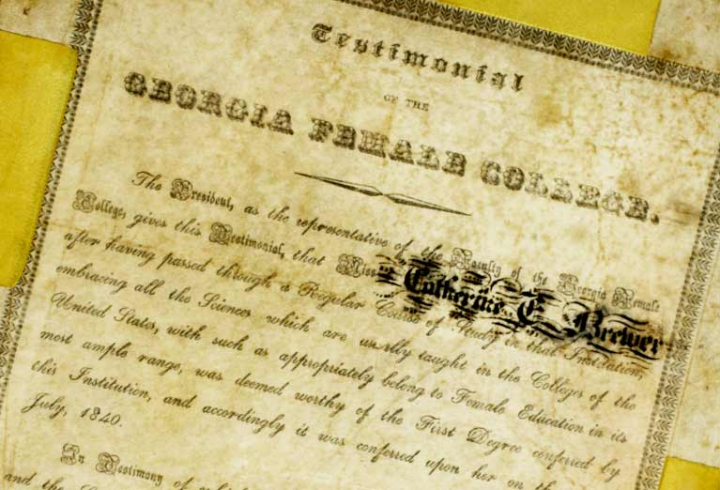 Testimonial
OF THE
GEORGIA FEMALE COLLEGE.
The President, as the representative of the Faculty of the Georgia Female
College, gives this Testimonial, that Miss Catherine E. Brewer
after having passed through a Regular Course of Study in that Institution,
embracing all the Sciences which are usually taught in the Colleges of the
United States, with such as appropriately belong to Female Education in its
most ample range, was deemed worthy of the First Degree conferred by
this Institution, and accordingly it was conferred upon her on the
July, 1840.
In Testimony of
and the